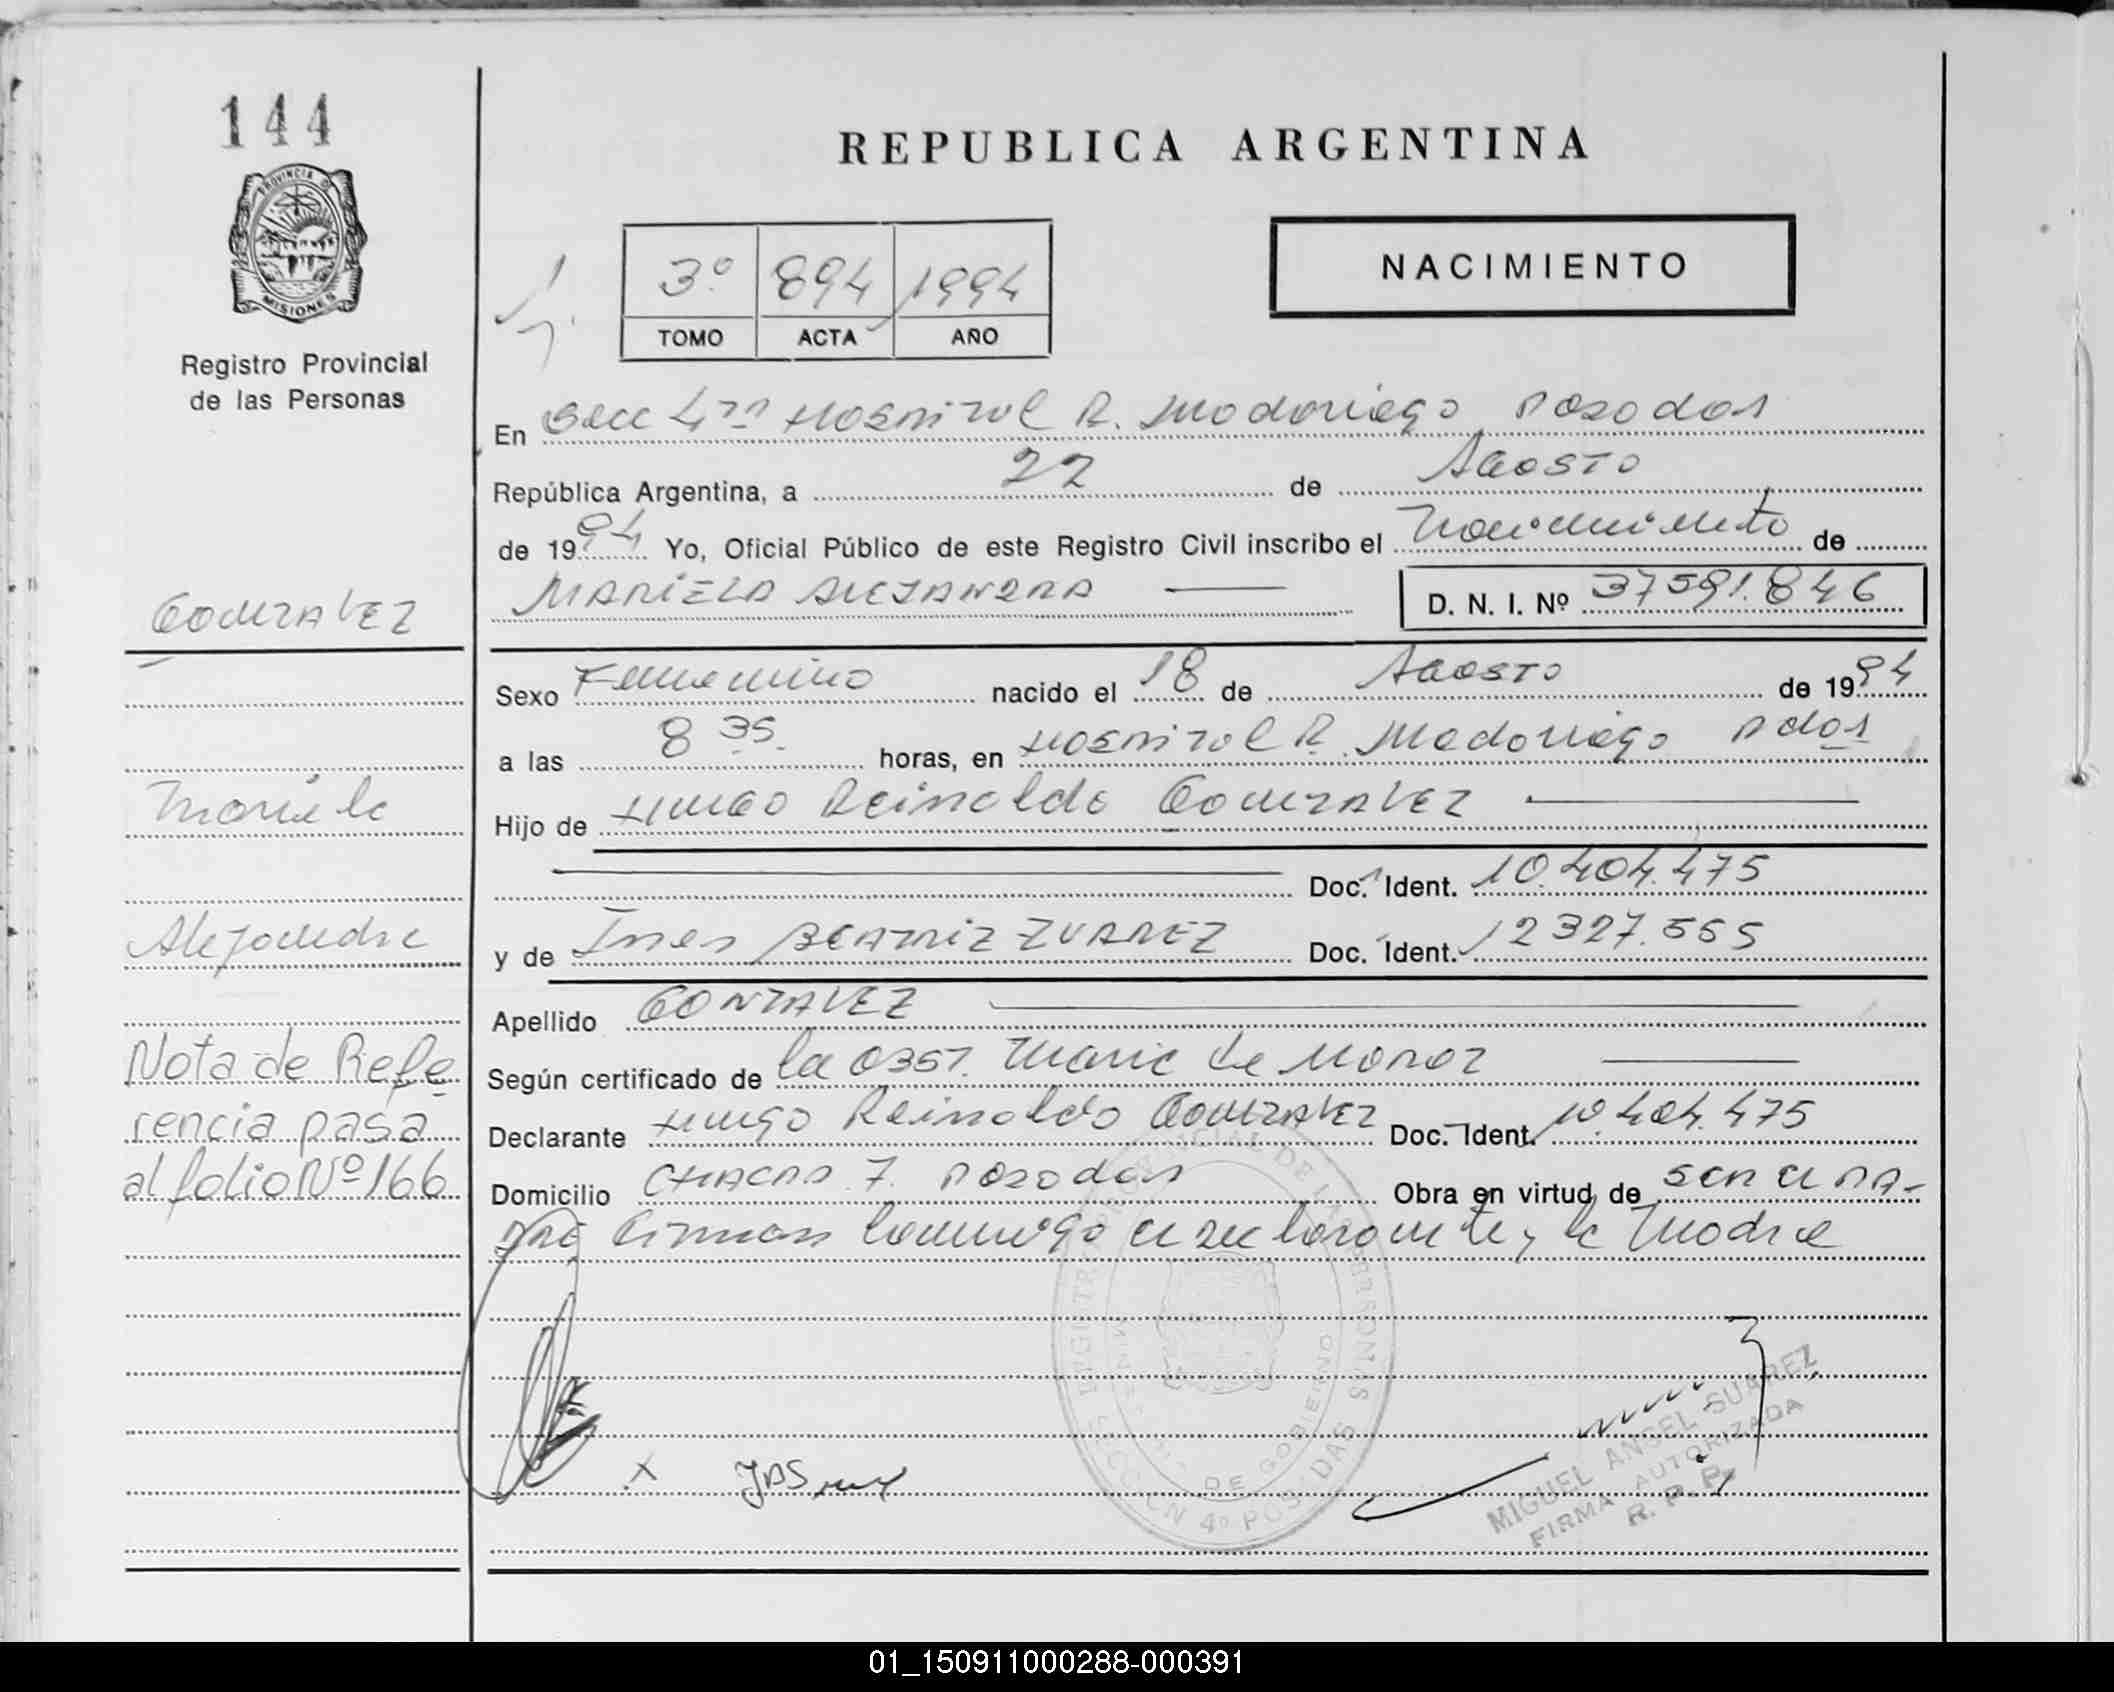 144
REPUBLICA ARGENTINA
PROVINCIA D
MISIONES
3º 894 1994
TOMO ACTA AÑO
NACIMIENTO
Registro Provincial
de las Personas
En Secc 4ta Hospital R. Madariaga Posadas
República Argentina, a 22 de Agosto
de 1994 Yo, Oficial Público de este Registro Civil inscribo el Nacimiento de
MARIELA ALEJANDRA D. N. I. Nº 37591.846
GONZALEZ
Sexo Femenino nacido el 18 de Agosto de 1994
a las 8 35 horas, en Hospital R. Madariaga Pdas
Mariela
Hijo de Hugo Reinaldo GONZALEZ
Doc. Ident. 10.404.475
Alejandra
y de Ines BEATRIZ ZUAREZ Doc. Ident. 12327.555
Apellido GONZALEZ
Nota de Refe
Según certificado de la OBST. Maria de
rencia pasa
Declarante Hugo Reinaldo GONZALEZ Doc. Ident. 10.404.475
al folio Nº 166
Domicilio CHACRA 7. Posadas Obra en virtud de SER el PA-
DRE Firman conmigo el declarante y la Madre
REGISTRO PROVINCIAL DE LAS PERSONAS
DE GOBIERNO
SECCION 4º POSADAS
MIGUEL ANGEL SUAREZ
FIRMA AUTORIZADA
R. P. P.
01_150911000288-000391